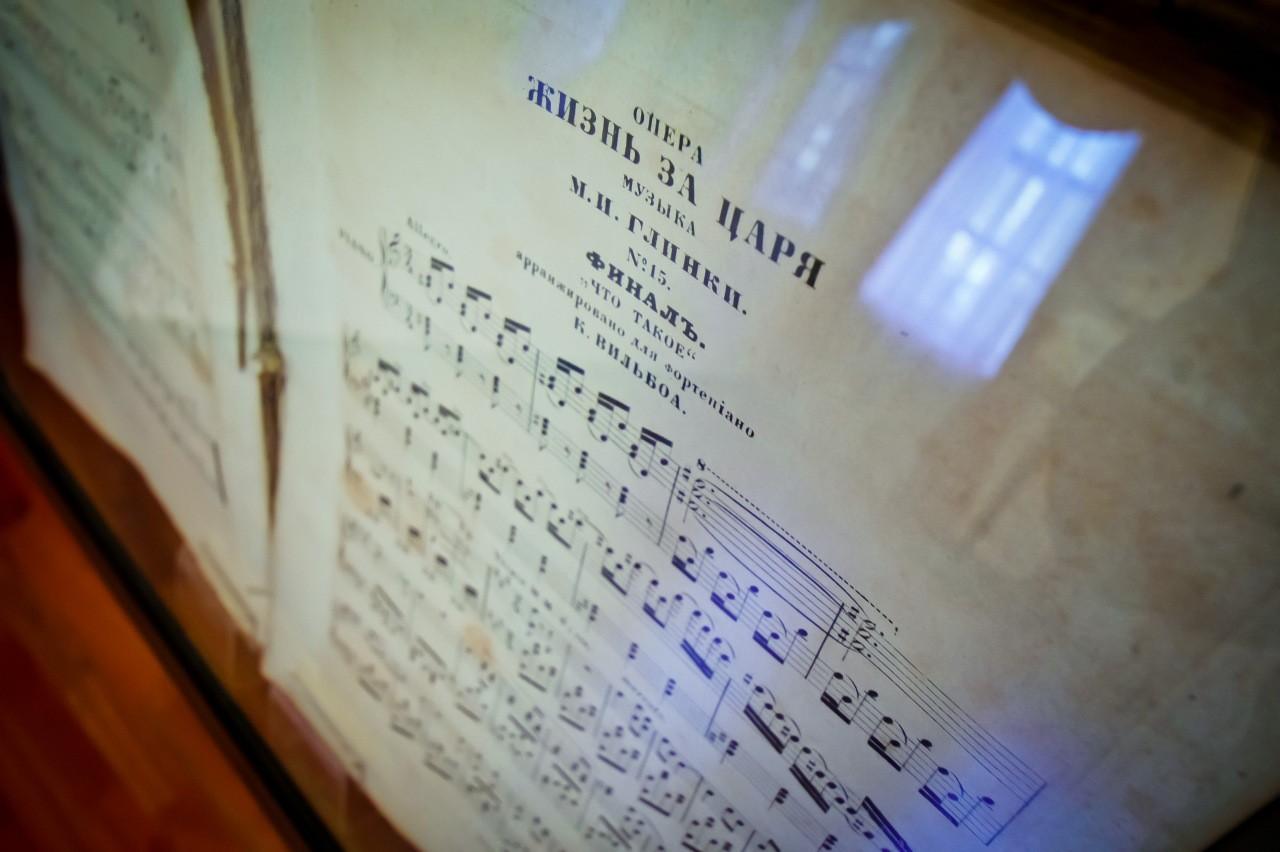 ОПЕРА
ЖИЗНЬ ЗА ЦАРЯ
МУЗЫКА
М. И. ГЛИНКИ.
№ 15.
ФИНАЛЪ.
„ЧТО ТАКОЕ“
арранжировано для фортепіано
К. ВИЛЬБОА.
Allegro
PIANO
8